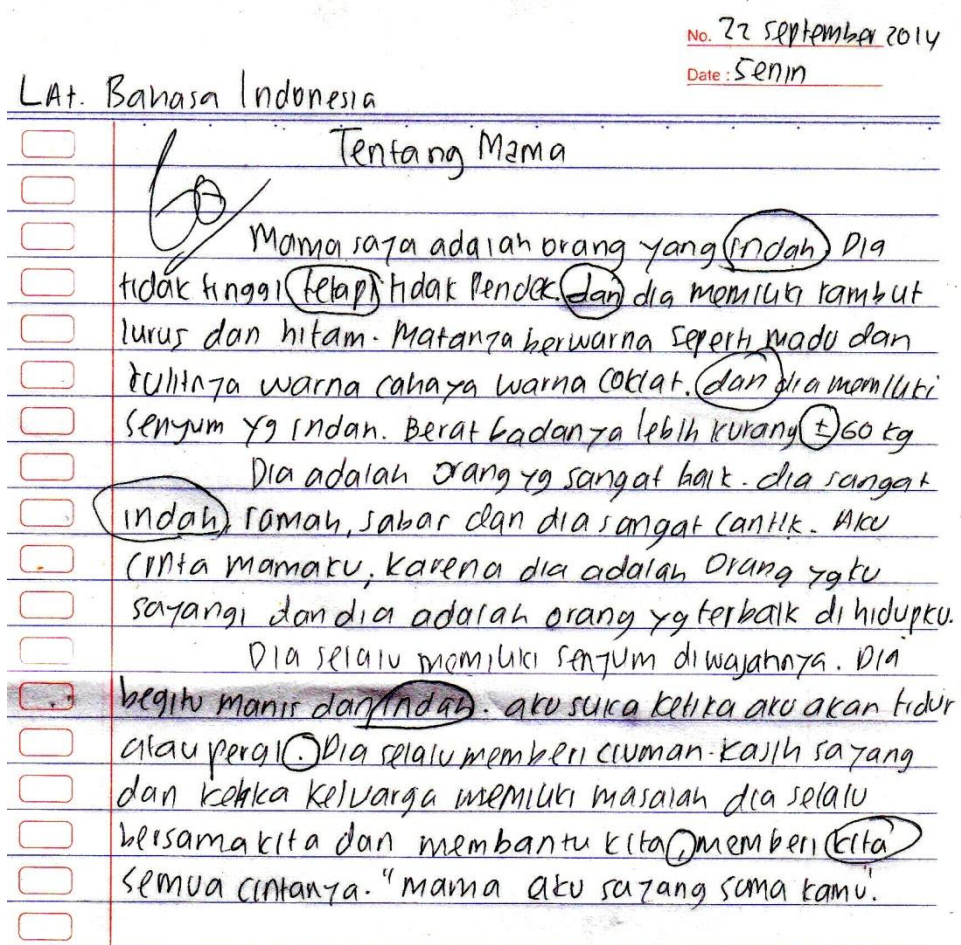 No. 22 September 2014
Date : Senin
LAt. Bahasa Indonesia
Tentang Mama
60
Mama saya adalah orang yang indah Dia
tidak tinggi tetapi tidak Pendek. dan dia memiliki rambut
lurus dan hitam. Matanya berwarna seperti madu dan
kulitnya warna cahaya warna coklat. dan dia memiliki
senyum yg indah. Berat badanya lebih kurang ± 60 kg
Dia adalah orang yg sangat baik. dia sangat
indah, ramah, sabar dan dia sangat cantik. Aku
cinta mamaku, karena dia adalah orang ygku
sayangi dan dia adalah orang yg terbaik di hidupku.
Dia selalu memiliki senyum diwajahnya. Dia
begitu manis dan indah. aku suka ketika aku akan tidur
atau pergi. Dia selalu memberi ciuman kasih sayang
dan ketika keluarga memiliki masalah dia selalu
bersama kita dan membantu kita, memberi kita
semua cintanya. "mama aku sayang sama kamu".